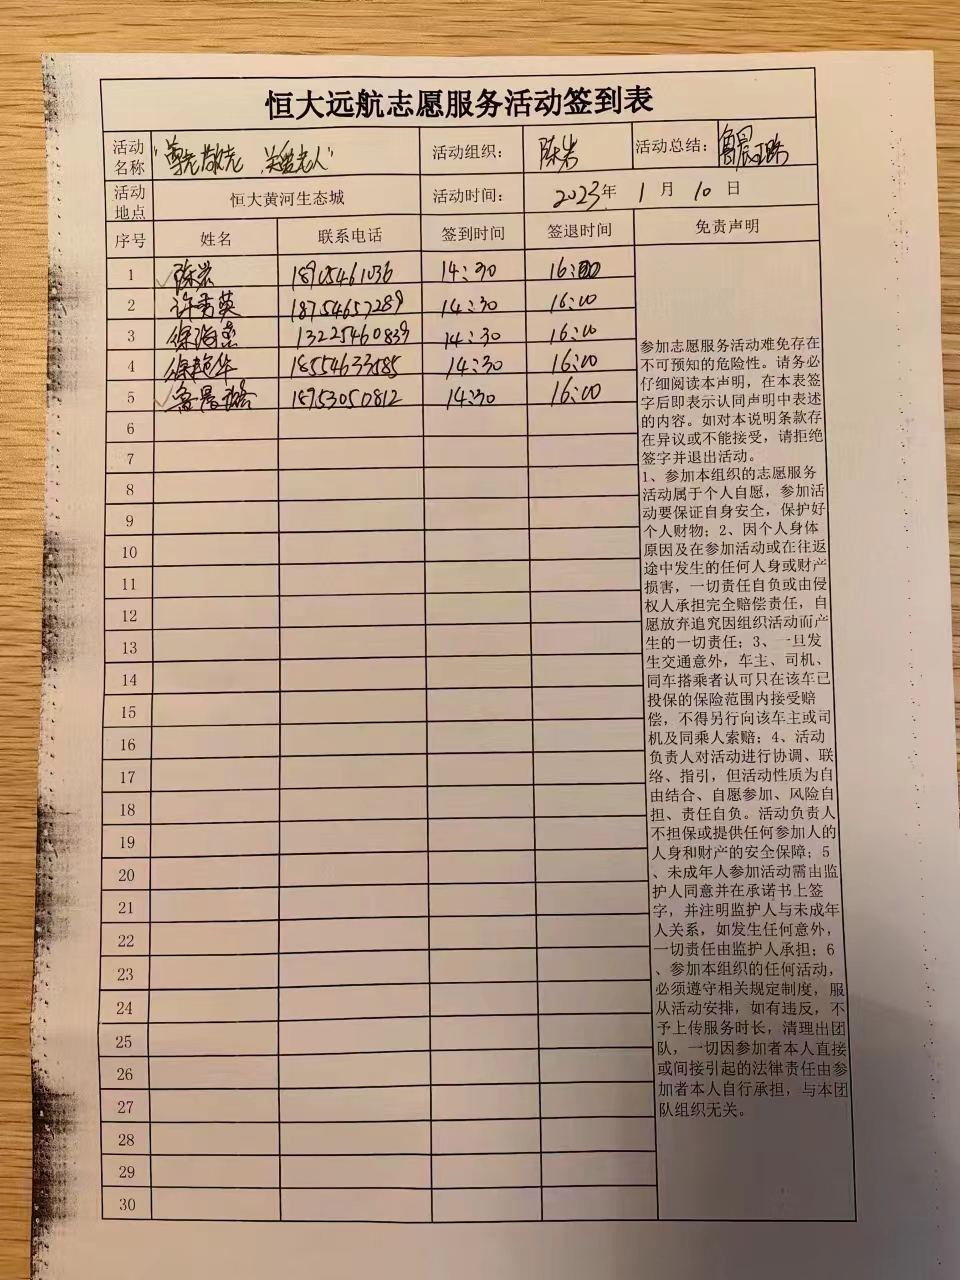 恒大远航志愿服务活动签到表
活动名称 "尊老敬老 关爱老人" 活动组织： 陈岩 活动总结： 鲁晨璐
活动地点 恒大黄河生态城 活动时间： 2023年 1月 10日
序号 姓名 联系电话 签到时间 签退时间 免责声明
1 陈岩 18905461036 14:30 16:00
2 许秀英 18754657289 14:30 16:00
3 徐海 13225460839 14:30 16:00
4 徐艳华 18554633585 14:30 16:00
5 鲁晨璐 18953050812 14:30 16:00
6
7
8
9
10
11
12
13
14
15
16
17
18
19
20
21
22
23
24
25
26
27
28
29
30
参加志愿服务活动难免存在
不可预知的危险性。请务必
仔细阅读本声明，在本表签
字后即表示认同声明中表述
的内容。如对本说明条款存
在异议或不能接受，请拒绝
签字并退出活动。
1、参加本组织的志愿服务
活动属于个人自愿，参加活
动要保证自身安全，保护好
个人财物；2、因个人身体
原因及在参加活动或在往返
途中发生的任何人身或财产
损害，一切责任自负或由侵
权人承担完全赔偿责任，自
愿放弃追究因组织活动而产
生的一切责任；3、一旦发
生交通意外，车主、司机、
同车搭乘者认可只在该车已
投保的保险范围内接受赔
偿，不得另行向该车主或司
机及同乘人索赔；4、活动
负责人对活动进行协调、联
络、指引，但活动性质为自
由结合、自愿参加、风险自
担、责任自负。活动负责人
不担保或提供任何参加人的
人身和财产的安全保障；5
、未成年人参加活动需由监
护人同意并在承诺书上签
字，并注明监护人与未成年
人关系，如发生任何意外，
一切责任由监护人承担；6
、参加本组织的任何活动，
必须遵守相关规定制度，服
从活动安排，如有违反，不
予上传服务时长，清理出团
队，一切因参加者本人直接
或间接引起的法律责任由参
加者本人自行承担，与本团
队组织无关。